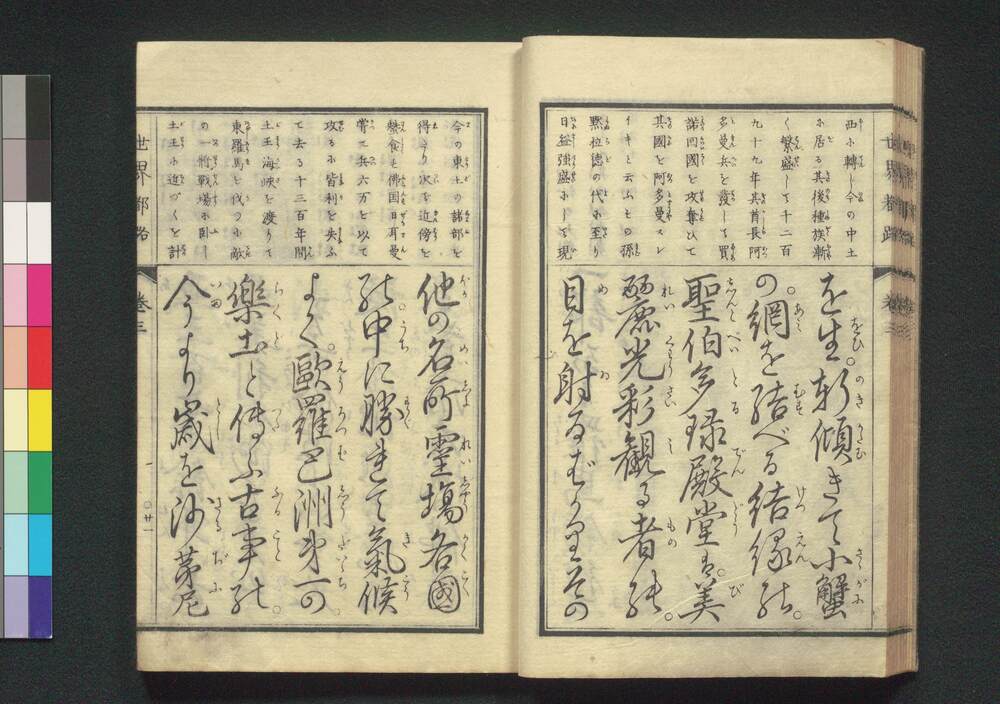 西に轉し今の中土
に居る其後種族漸
く繁盛して千二百
九十九年其首長阿
多曼兵を發して買
諾四國を攻奪ひて
其國を阿多曼スレ
イキと云ふその孫
黙拉德の代に至り
日益强盛にして現
を生。軒傾きて小蟹
の。網を結べる結緣の。
聖伯多琭殿堂は。美
麗光彩観る者の。
目を射るばかり其の
世界都路
巻三
今の東土の諸部を
得たり次で近傍を
蠶食す佛国日耳曼
嘗て兵六万を以て
攻るに皆利を失ふ
て去る千三百年間
土王海峽を渡りて
東羅馬を伐つに敵
の一將戰場に臥し
土王に近づくを計
他の名所靈場各國
の中に勝れて氣候
よく。歐羅巴洲第一の
樂土。と傳ふ古事の。
今より歲を沙荜尼
世界都路
巻三
〇廿一